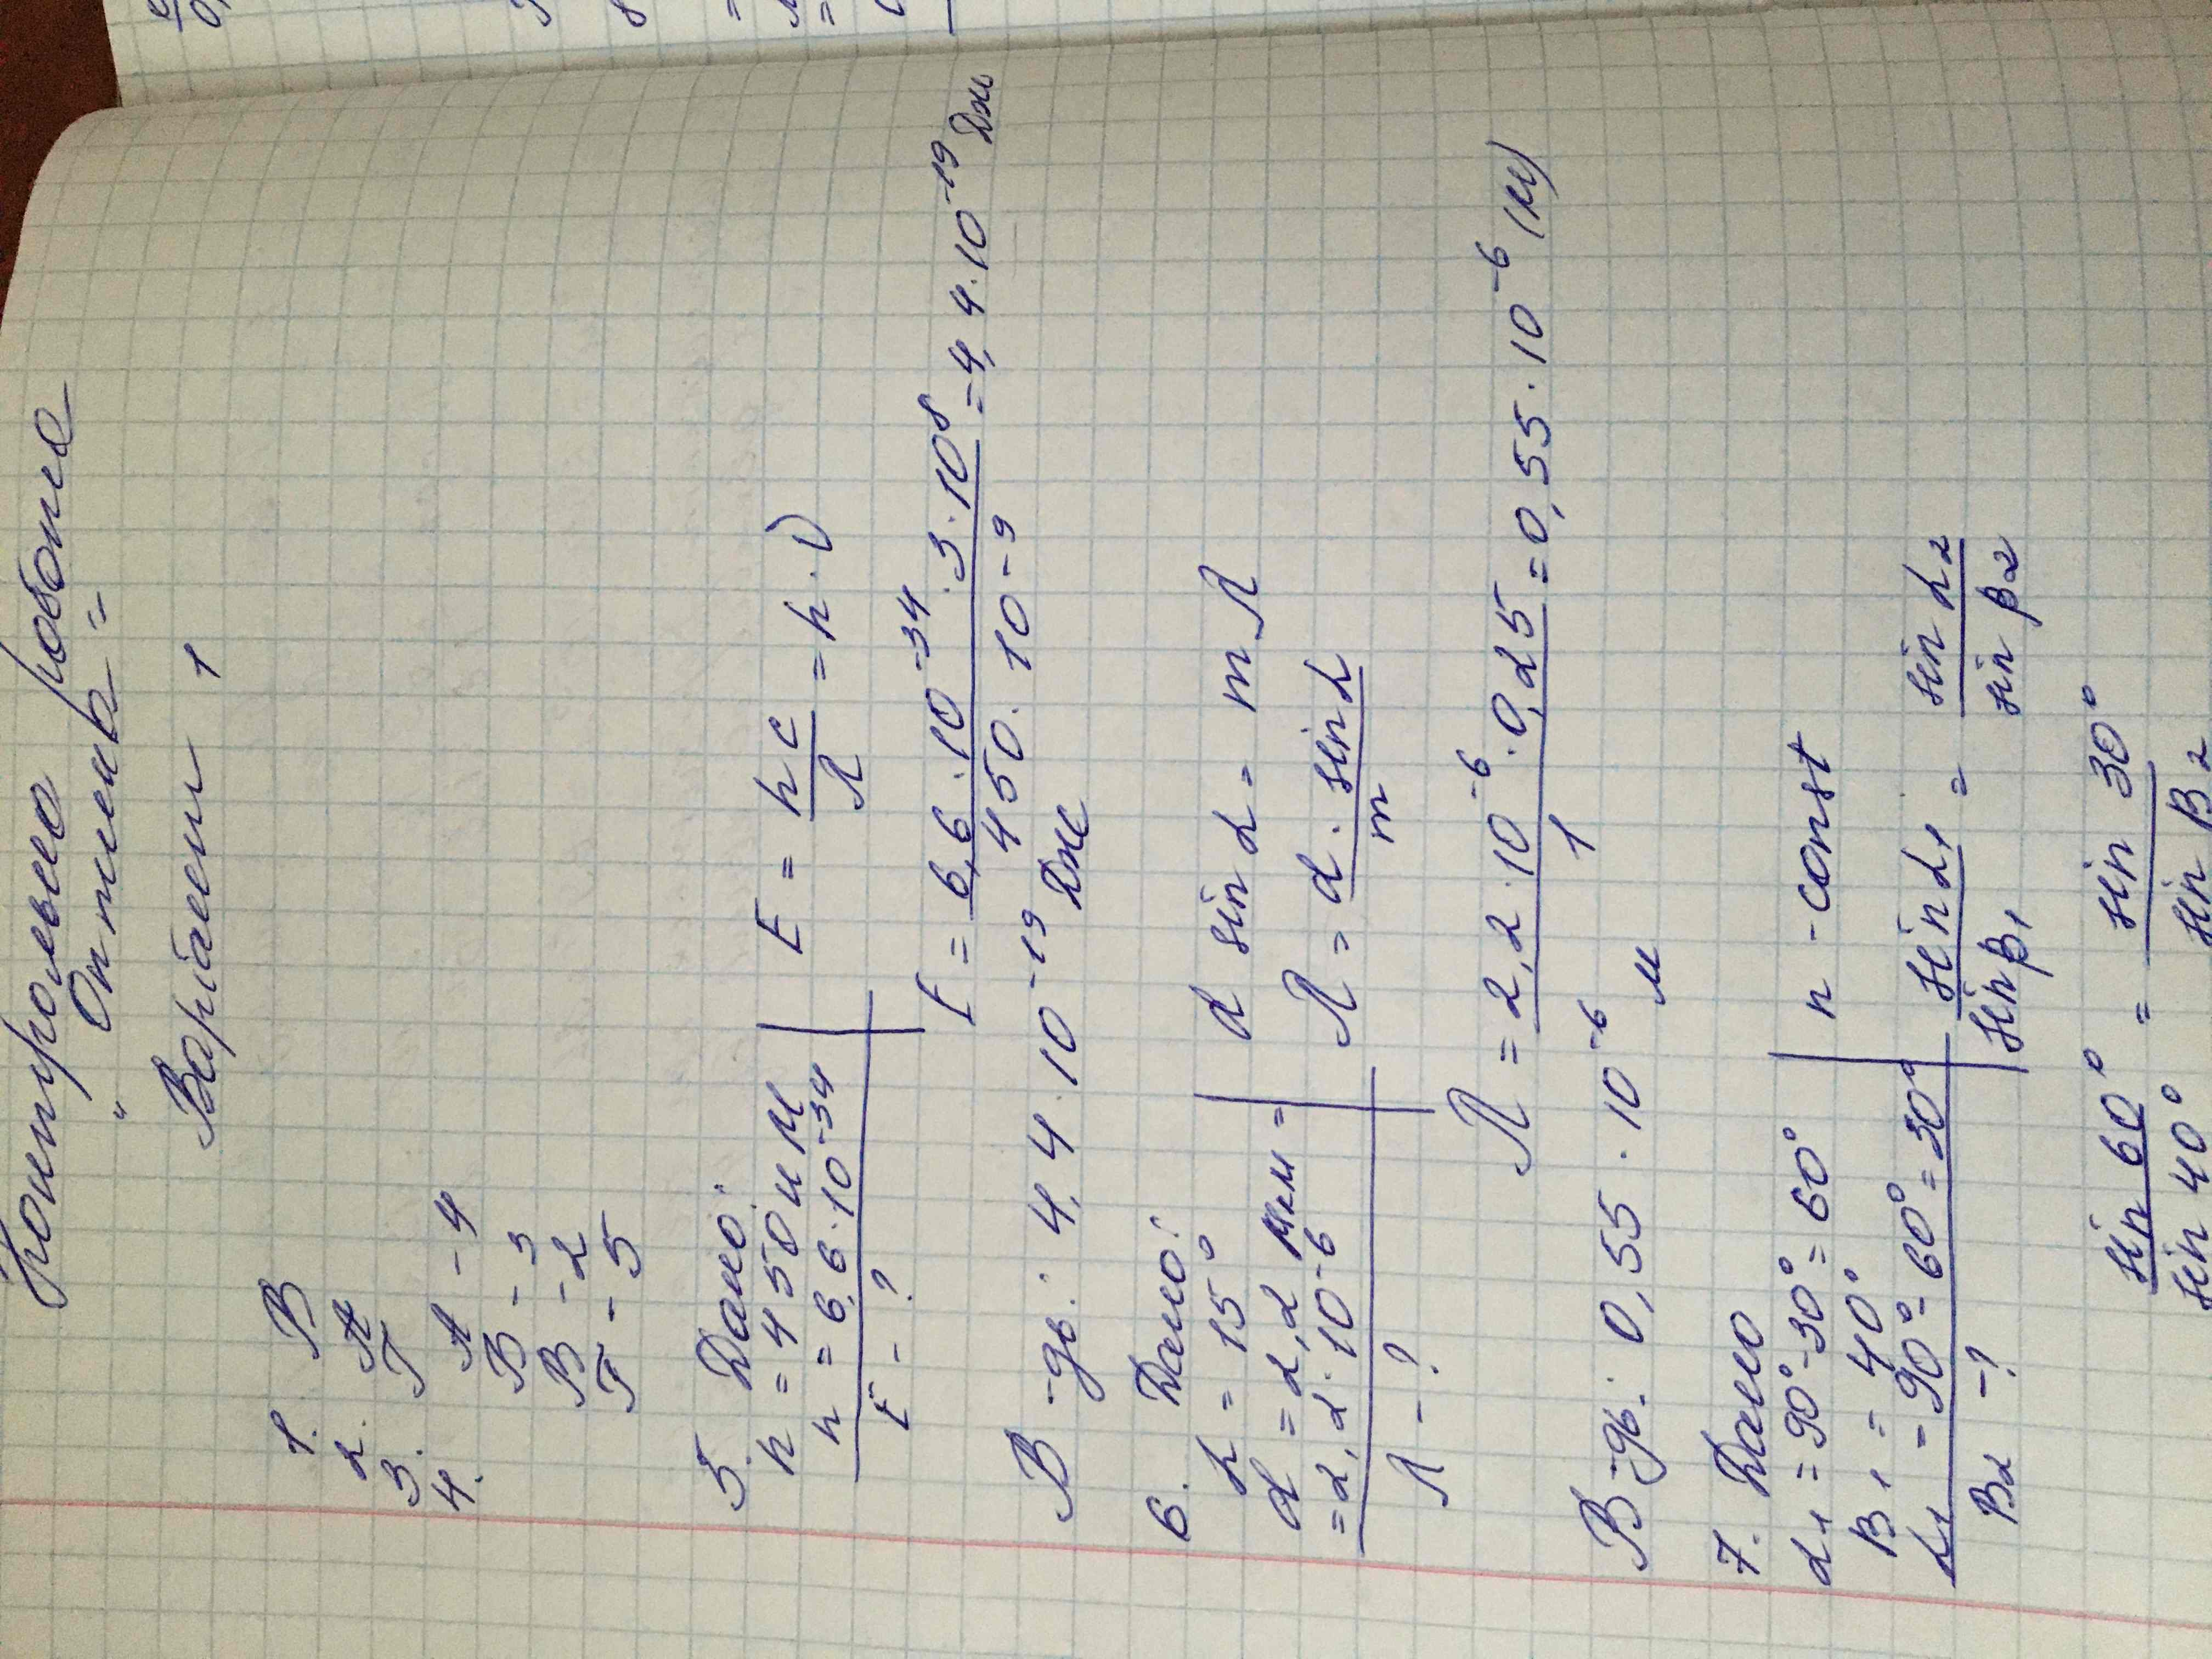 Контрольна робота
" Оптика "
Варіант 1
1. В
2. А
3. Г
4. А - 4
Б - 3
В - 2
Г - 5
5. Дано:
h = 450 нм
h = 6,6 · 10⁻³⁴
E - ?
E = hc/λ = h · υ
E = 6,6 · 10⁻³⁴ · 3 · 10⁸ / 450 · 10⁻⁹ = 4,4 · 10⁻¹⁹ Дж
В-дь: 4,4 · 10⁻¹⁹ Дж
6. Дано:
α = 15°
d = 2,2 мкм =
= 2,2 · 10⁻⁶
λ - ?
d sin α = m λ
λ = d · sin α / m
λ = 2,2 · 10⁻⁶ · 0,25 / 1 = 0,55 · 10⁻⁶ (м)
В-дь: 0,55 · 10⁻⁶ м
7. Дано
α₁ = 90° - 30° = 60°
B₁ = 40°
α₁ - 90° - 60° = 30°
B₂ - ?
n - const
sin α₁ / sin β₁ = sin α₂ / sin β₂
sin 60° / sin 40° = sin 30° / sin B₂